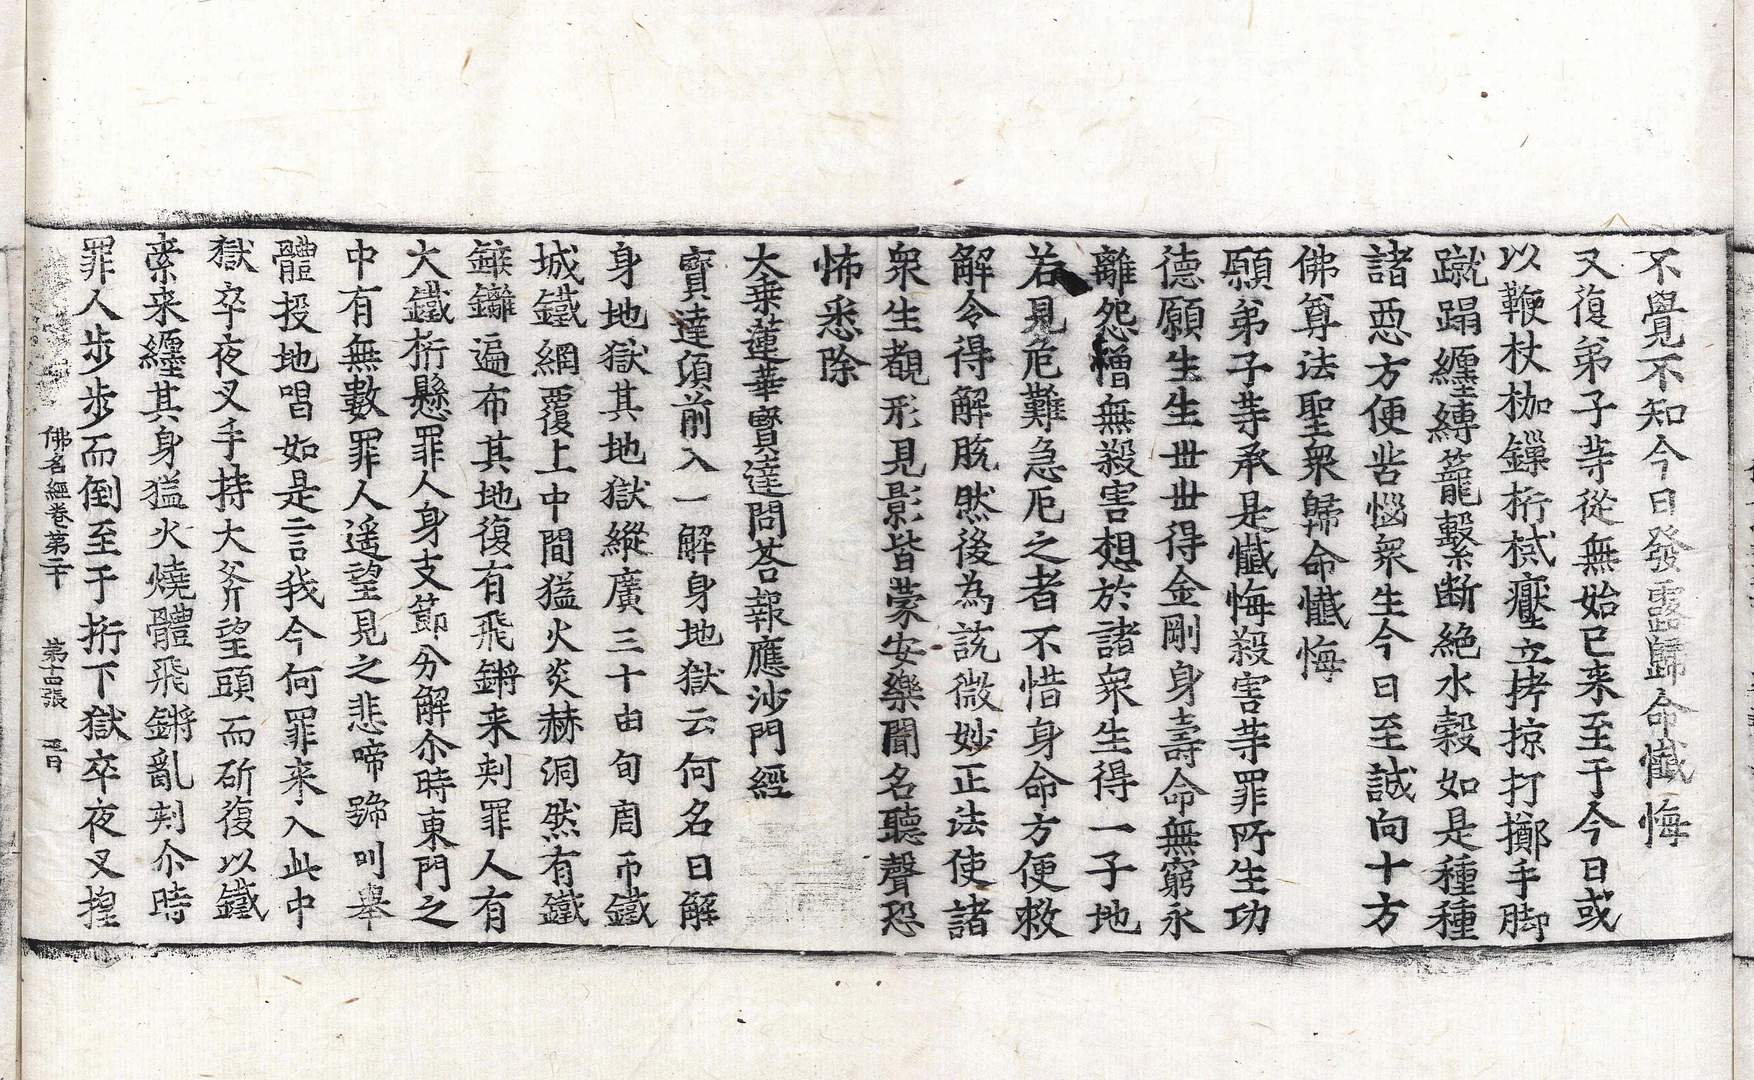 不覺不知今日發露歸命懺悔
又復弟子䓁從無始已来至于今日或
以鞭杖枷鏁桁棫壓立拷掠打擲手脚
蹴蹋纏縛籠繫断絕水穀如是種種
諸惡方便苦惱衆生今日至誠向十方
佛尊法聖衆歸命懺悔
願弟子䓁承是懺悔殺害䓁罪所生功
德願生生丗丗得金剛身壽命無窮永
離怨憎無殺害想於諸衆生得一子地
若見危難急厄之者不惜身命方便救
解令得解脫然後為說微妙正法使諸
衆生覩形見影皆蒙安樂聞名聽聲恐
怖悉除
大乗蓮華寶達問荅報應沙門經
寶達須前入一解身地獄云何名曰解
身地獄其地獄縱廣三十由旬周帀鐵
城鐵網覆上中間猛火炎赫洞然有鐵
鏃鑭遍布其地復有飛鏘来刾罪人有
大鐵桁懸罪人身支節分解尒時東門之
中有無數罪人遥望見之悲啼號叫舉
體投地唱如是言我今何罪来入此中
獄卒夜叉手持大斧望頭而斫復以鐵
索来纏其身猛火燒體飛鏘亂刾尒時
罪人步步而倒至于桁下獄卒夜叉
佛名經卷第二十 第十四張